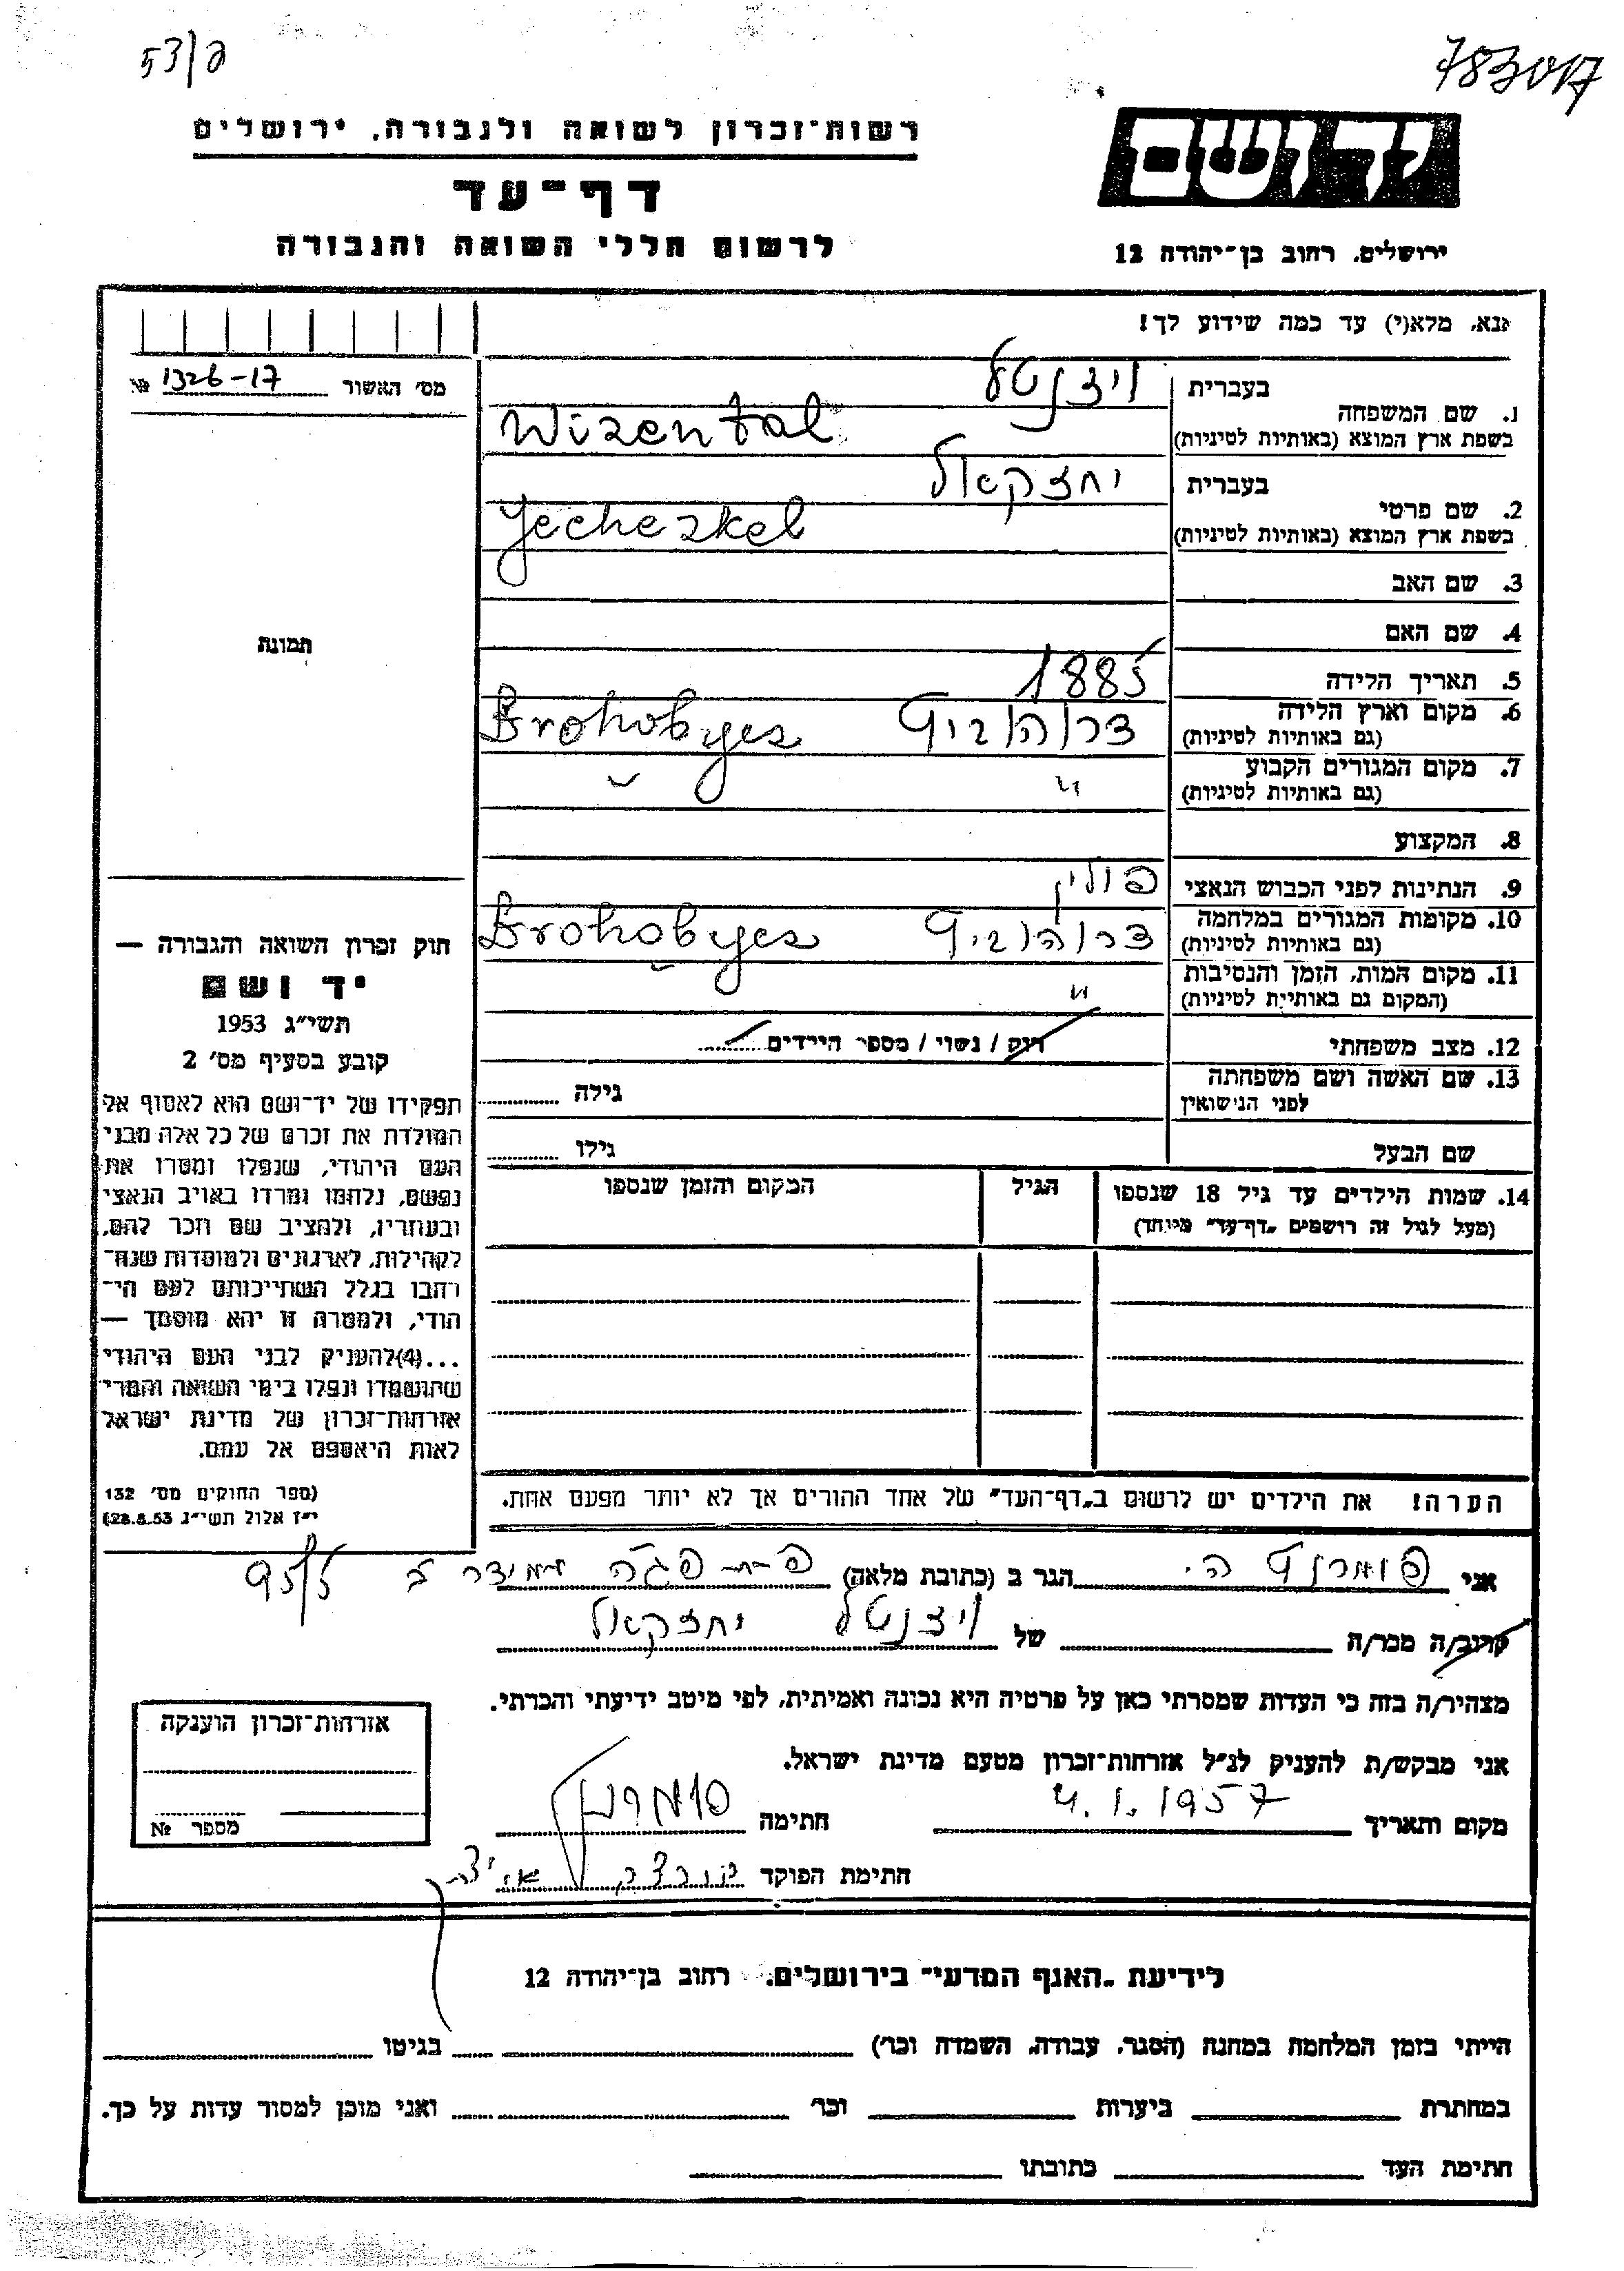 53/פ
783017
רשות־זכרון לשואה ולגבורה, ירושלים
דף־עד
לרשום חללי השואה והגבורה
יד ושם
ירושלים, רחוב בן־יהודה 12
אנא, מלא(י) עד כמה שידוע לך!
מס׳ האשור 1326-17 №
תמונה
1. שם המשפחה
בעברית ויזנטל
בשפת ארץ המוצא (באותיות לטיניות) Wizental
2. שם פרטי
בעברית יחזקאל
בשפת ארץ המוצא (באותיות לטיניות) Jechezkel
3. שם האב
4. שם האם
5. תאריך הלידה 1885
6. מקום וארץ הלידה דרוהוביץ Drohobyes
(גם באותיות לטיניות)
7. מקום המגורים הקבוע " "
(גם באותיות לטיניות)
8. המקצוע
9. הנתינות לפני הכבוש הנאצי פולין
10. מקומות המגורים במלחמה דרוהוביץ Drohobyes
(גם באותיות לטיניות)
11. מקום המות, הזמן והנסיבות " "
(המקום גם באותיות לטיניות)
12. מצב משפחתי רוק / נשוי / מספר הילדים
13. שם האשה ושם משפחתה גילה
לפני הנישואין
שם הבעל גילו
14. שמות הילדים עד גיל 18 שנספו הגיל המקום והזמן שנספו
(מעל לגיל זה רושמים „דף־עד״ מיוחד)
הערה! את הילדים יש לרשום ב„דף־העד״ של אחד ההורים אך לא יותר מפעם אחת.
חוק זכרון השואה והגבורה —
יד ושם
תשי״ג 1953
קובע בסעיף מס׳ 2
תפקידו של יד־ושם הוא לאסוף אל
המולדת את זכרם של כל אלה מבני
העם היהודי, שנפלו ומסרו את
נפשם, נלחמו ומרדו באויב הנאצי
ובעוזריו, ולהציב שם וזכר להם,
לקהילות, לארגונים ולמוסדות שנח־
רבו בגלל השתייכותם לעם הי־
הודי, ולמטרה זו יהא מוסמך —
...(4) להעניק לבני העם היהודי
שהושמדו ונפלו בימי השואה והמרי
אזרחות־זכרון של מדינת ישראל
לאות היאספם אל עמם.
(ספר החוקים מס׳ 132
י״ז אלול תשי״ג 28.8.53)
אני ה. הגר ב (כתובת מלאה) 95/5
קרוב/ה מכר/ה של ויזנטל יחזקאל
מצהיר/ה בזה כי העדות שמסרתי כאן על פרטיה היא נכונה ואמיתית, לפי מיטב ידיעתי והכרתי.
אני מבקש/ת להעניק לנ״ל אזרחות־זכרון מטעם מדינת ישראל.
מקום ותאריך 4.1.1957 חתימה
חתימת הפוקד
אזרחות־זכרון הוענקה
מספר №
לידיעת „האגף המדעי״ בירושלים. רחוב בן־יהודה 12
הייתי בזמן המלחמה במחנה (הסגר, עבודה, השמדה וכו׳) בגיטו
במחתרת ביערות וכו׳ ואני מוכן למסור עדות על כך.
חתימת העד כתובתו